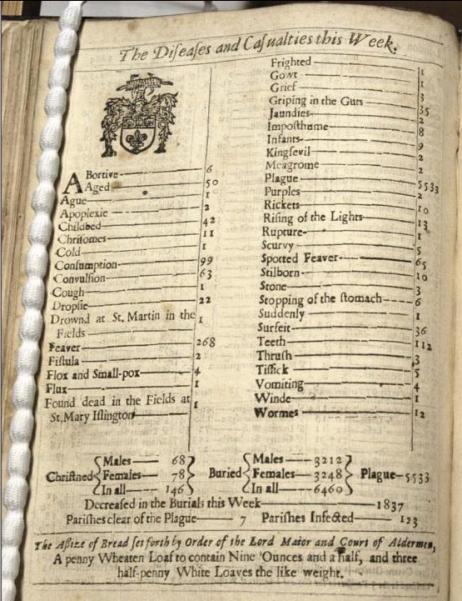 The Diſeaſes and Caſualties this Week.
Abortive 6
Aged 50
Ague 1
Apoplexie 2
Childbed 42
Chriſomes 11
Cold 1
Conſumption 99
Convulſion 63
Cough 1
Dropſie 22
Drownd at St. Martin in the 1
Fields
Feaver 268
Fiſtula 2
Flox and Small-pox 4
Flux 1
Found dead in the Fields at 1
St. Mary Iſlington
Frighted 1
Gowt 1
Grief 3
Griping in the Guts 35
Jaundies 2
Impoſthume 8
Infants 9
Kingſevil 2
Meagrome 2
Plague 5533
Purples 2
Rickets 10
Riſing of the Lights 13
Rupture 1
Scurvy 5
Spotted Feaver 65
Stilborn 10
Stone 3
Stopping of the ſtomach 6
Suddenly 1
Surfeit 36
Teeth 112
Thruſh 3
Tiſſick 5
Vomiting 4
Winde 1
Wormes 12
Chriſtned { Males 68 Females 78 In all 146 } Buried { Males 3212 Females 3248 In all 6460 } Plague 5533
Decreaſed in the Burials this Week 1837
Pariſhes clear of the Plague 7 Pariſhes Infected 123
The Aſſize of Bread ſet forth by Order of the Lord Maior and Court of Aldermen,
A penny Wheaten Loaf to contain Nine Ounces and a half, and three
half-penny White Loaves the like weight.